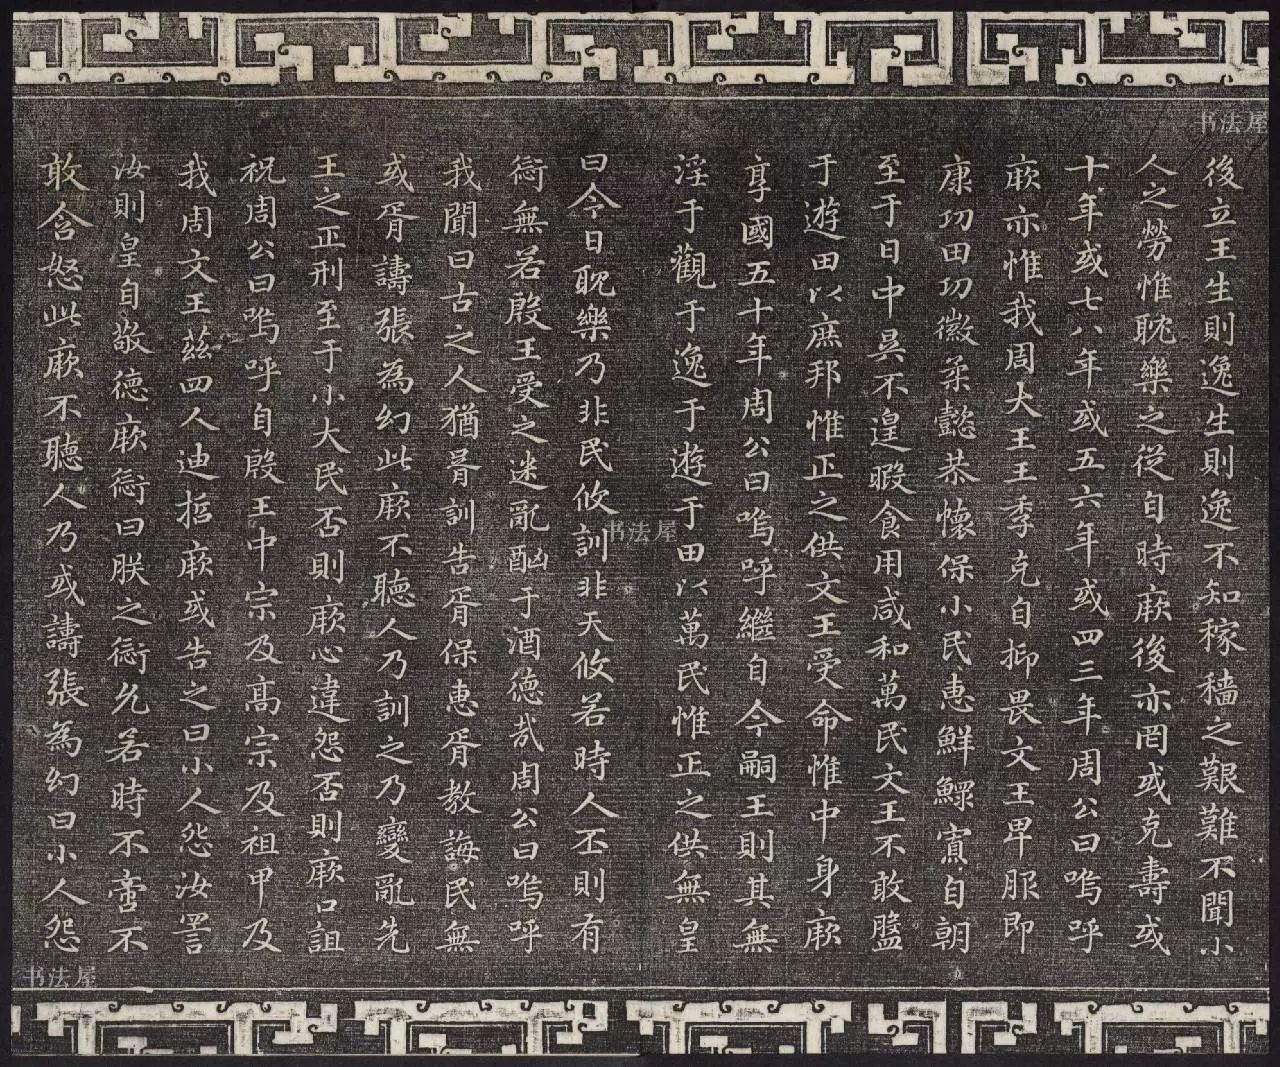 後立王生則逸生則逸不知稼穡之艱難不聞小
人之勞惟耽樂之從自時厥後亦罔或克壽或
十年或七八年或五六年或四三年周公曰嗚呼
厥亦惟我周大王王季克自抑畏文王卑服即
康功田功徽柔懿恭懷保小民惠鮮鰥寡自朝
至于日中昃不遑暇食用咸和萬民文王不敢盤
于遊田以庶邦惟正之供文王受命惟中身厥
享國五十年周公曰嗚呼繼自今嗣王則其無
淫于觀于逸于遊于田以萬民惟正之供無皇
曰今日耽樂乃非民攸訓非天攸若時人丕則有
愆無若殷王受之迷亂酗于酒德哉周公曰嗚呼
我聞曰古之人猶胥訓告胥保惠胥教誨民無
或胥譸張為幻此厥不聽人乃訓之乃變亂先
王之正刑至于小大民否則厥心違怨否則厥口詛
祝周公曰嗚呼自殷王中宗及高宗及祖甲及
我周文王茲四人迪哲厥或告之曰小人怨汝詈
汝則皇自敬德厥愆曰朕之愆允若時不啻不
敢含怒此厥不聽人乃或譸張為幻曰小人怨
书法屋
书法屋
书法屋